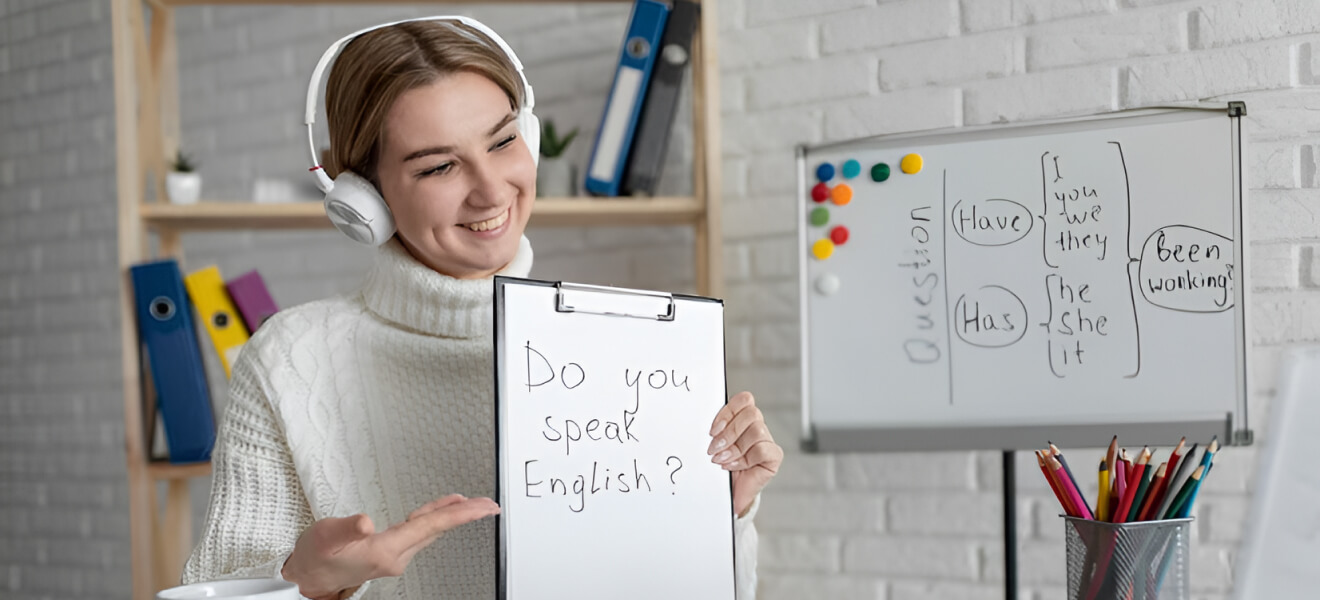 Do you
speak
English?
Question
Have
I
you
we
they
Has
he
she
it
Been
wonking?